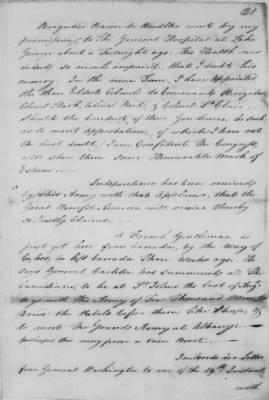 21
Brigadier Baron de Woedtke went by my
permission, to The General Hospital at Lake
George about a Fortnight ago; His Health was
indeed so much impaired, that I doubt his
recovery. In the mean Time, I have Appointed
the three Eldest Colonels to Command Brigades,
Colonel Stark, Colonel Reed, & Colonel St. Clair.
Should the Conduct of these Gentlemen be such
as to merit Approbation, of which I have not
the least doubt, I am Confident the Congress,
will shew them some Honourable Mark of
Esteem.
Independence has been received
by this Army with that Applause, that the
Great Benefit America will receive thereby
so Justly Claims.
A French Gentleman is
just got here from Canada, by the Way of
left Canada Three Weeks ago. He
says General Carleton has summoned All The
Canadians, to be at St. Johns the last of Augt.
with the Army of Ten Thousand Men to
drive the Rebels before them like Sheep, &
to meet the Grand Army at Albany—
perhaps this may prove a vain Boast.—
Inclosed is a Letter
from General Washington to me of the 19th. Instant
with